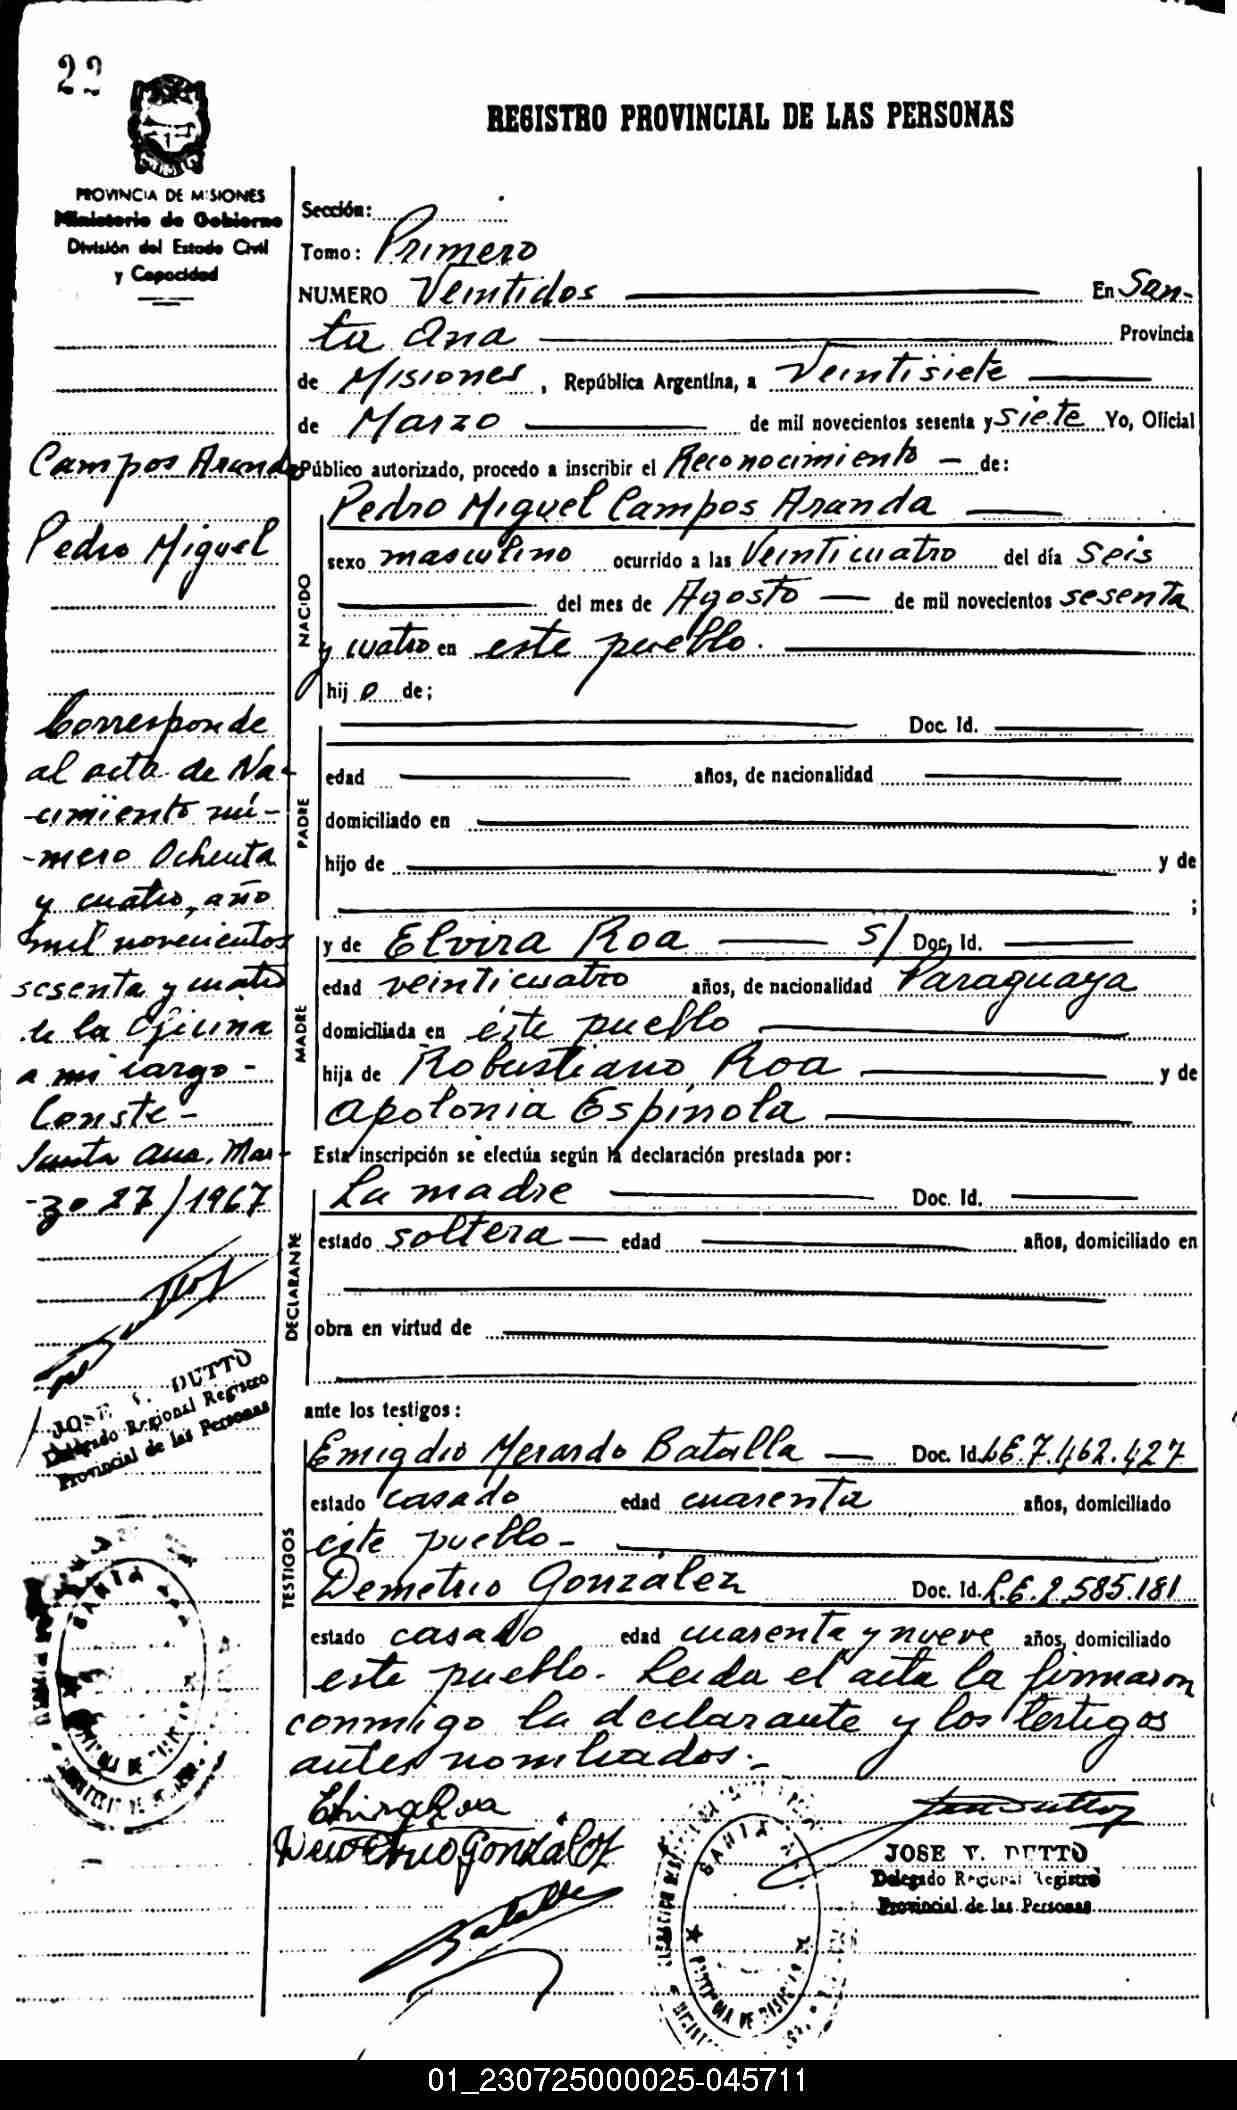 22
REGISTRO PROVINCIAL DE LAS PERSONAS
PROVINCIA DE MISIONES
Ministerio de Gobierno
División del Estado Civil
y Capacidad
Campos Aranda
Pedro Miguel
Corresponde
al acta de Na-
-cimiento nú-
-mero Ochenta
y cuatro, año
mil novecientos
sesenta y cuatro
de la Oficina
a mi cargo -
Conste -
Santa Ana, Mar-
-zo 27/1967
JOSE V. DUTTO
Delegado Regional Registro
Provincial de las Personas
BAHIA
Sección:
Tomo: Primero
NUMERO Veintidos En San-
ta Ana Provincia
de Misiones, República Argentina, a Veintisiete
de Marzo de mil novecientos sesenta y Siete Yo, Oficial
Público autorizado, procedo a inscribir el Reconocimiento - de:
NACIDO
Pedro Miguel Campos Aranda
sexo masculino ocurrido a las Veinticuatro del día Seis
del mes de Agosto de mil novecientos sesenta
y cuatro en este pueblo.
hij o de;
PADRE
Doc. Id.
edad años, de nacionalidad
domiciliado en
hijo de y de
;
MADRE
y de Elvira Roa S/ Doc. Id.
edad veinticuatro años, de nacionalidad Paraguaya
domiciliada en éste pueblo
hija de Robustiano Roa y de
Apolonia Espínola
Esta inscripción se efectúa según la declaración prestada por:
DECLARANTE
La madre Doc. Id.
estado soltera - edad años, domiciliado en
obra en virtud de
ante los testigos:
TESTIGOS
Emigdio Merardo Batalla Doc. Id. LE.7.462.427
estado casado edad cuarenta años, domiciliado
éste pueblo -
Demetrio González Doc. Id. L.E.2.585.181
estado casado edad cuarenta y nueve años, domiciliado
este pueblo. Leida el acta la firmaron
conmigo la declarante y los testigos
antes nombrados.-
Elvira Roa
Demetrio Gonzalez
Batalla
BAHIA
JOSE V. DUTTO
Delegado Regional Registro
Provincial de las Personas
01_230725000025-045711